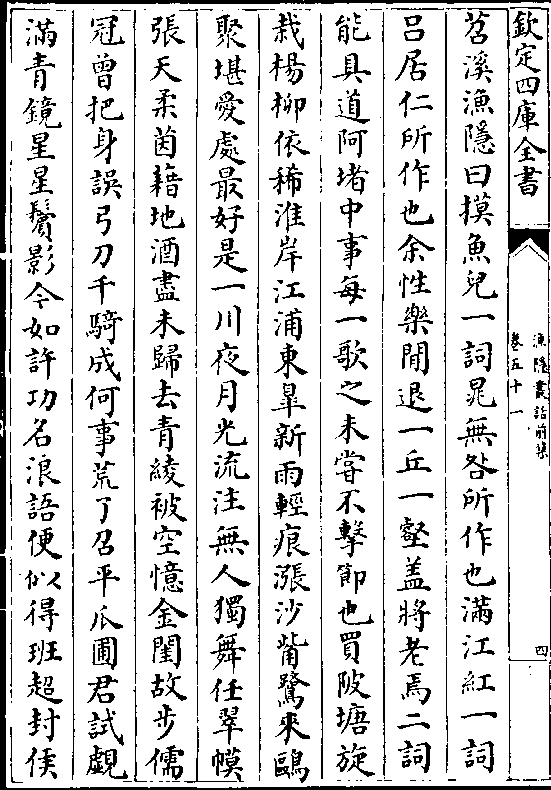 欽定四庫全書
漁隱叢話前集
卷五十一
四
苕溪漁隱曰摸魚兒一詞晁無咎所作也滿江紅一詞
吕居仁所作也余性樂閒退一丘一壑蓋將老焉二詞
能具道阿堵中事每一歌之未嘗不擊節也買陂塘旋
栽楊柳依稀淮岸江浦東臯新雨輕痕漲沙觜鷺來鷗
聚堪愛處最好是一川夜月光流注無人獨舞任翠幙
張天柔茵藉地酒盡未歸去青綾被空憶金閨故步儒
冠曾把身誤弓刀千騎成何事荒了召平瓜圃君試覷
滿青鏡星星鬢影今如許功名浪語便似得班超封侯